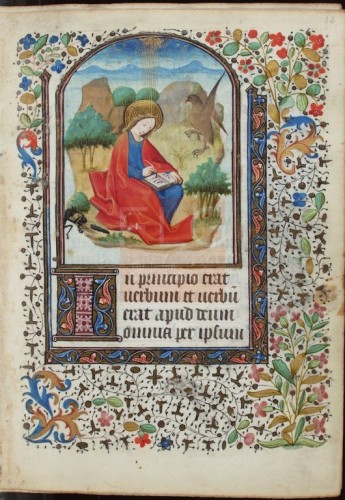 In principio erat
uerbum et uerbū
erat apud deum
omnia per ipsum